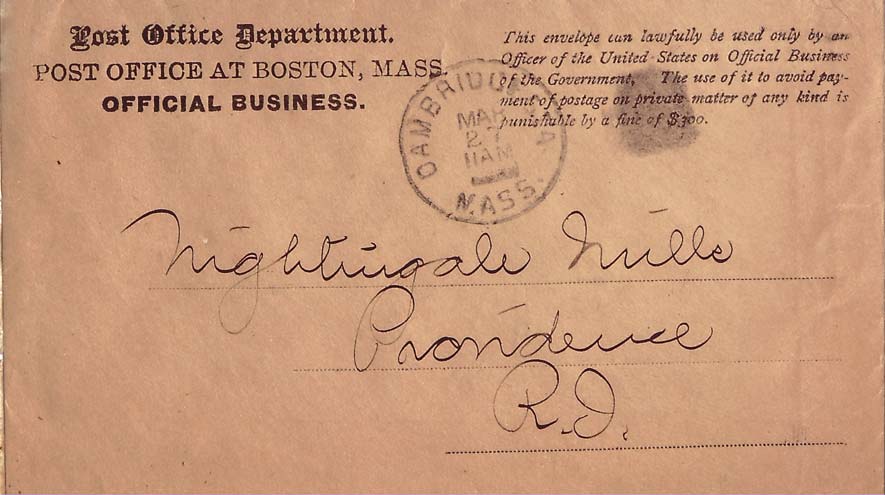 Post Office Department.
POST OFFICE AT BOSTON, MASS.
OFFICIAL BUSINESS.
This envelope can lawfully be used only by an
Officer of the United States on Official Business
of the Government. The use of it to avoid pay-
ment of postage on private matter of any kind is
punishable by a fine of $300.
CAMBRIDGE STA
MAR
27
11AM
MASS.
Nightingale Mills
Providence
R.I.